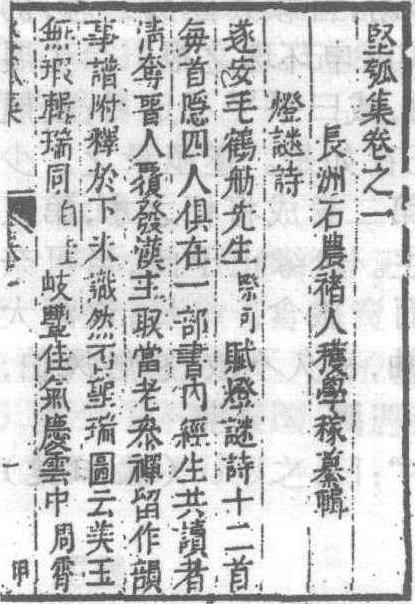 堅瓠集卷之一
長洲石農褚人穫學稼纂輯
燈謎詩
遂安毛鶴舫先生際可賦燈謎詩十二首
每首隱四人俱在一部書內經生共讀者
清奪晉人覆發漢主取當老參禪留作韻
事譜附釋於下未識然否聖瑞圖云美玉
無瑕輯瑞同白圭岐豐佳氣應雲中周霄
一 甲